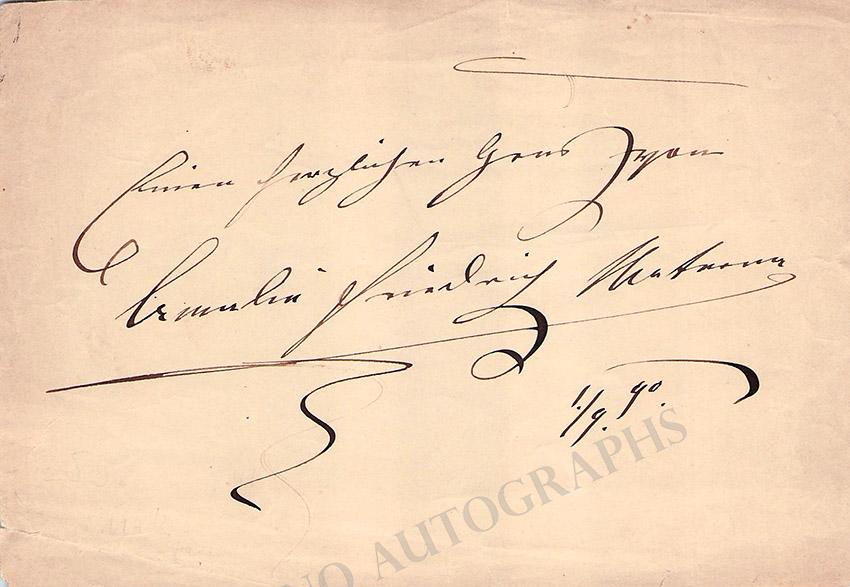 Einen herzlichen Gruss von
Amalie Friedrich Materna
1./9. 90.
NO AUTOGRAPHS